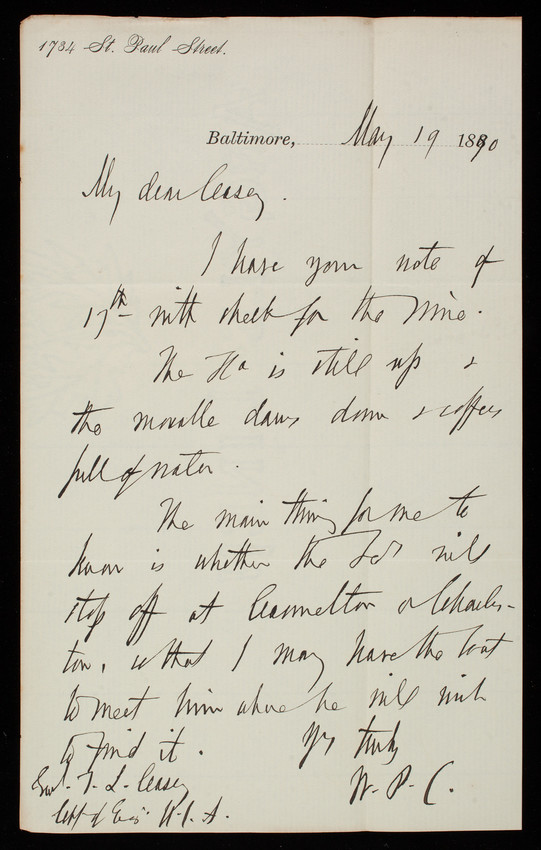 1734 St. Paul Street.
Baltimore, May 19 1890
My dear Casey.
I have your note of
17th with check for the wine.
The is still up &
the movable dams down & coffers
full of water.
The main thing for me to
know is whether the will
stop off at Cannelton or Charles-
ton, so that I may have the boat
to meet him where he will wish
to find it.
Yrs truly
W. P. C.
Genl. T. L. Casey
Chf of Eng. U.S.A.